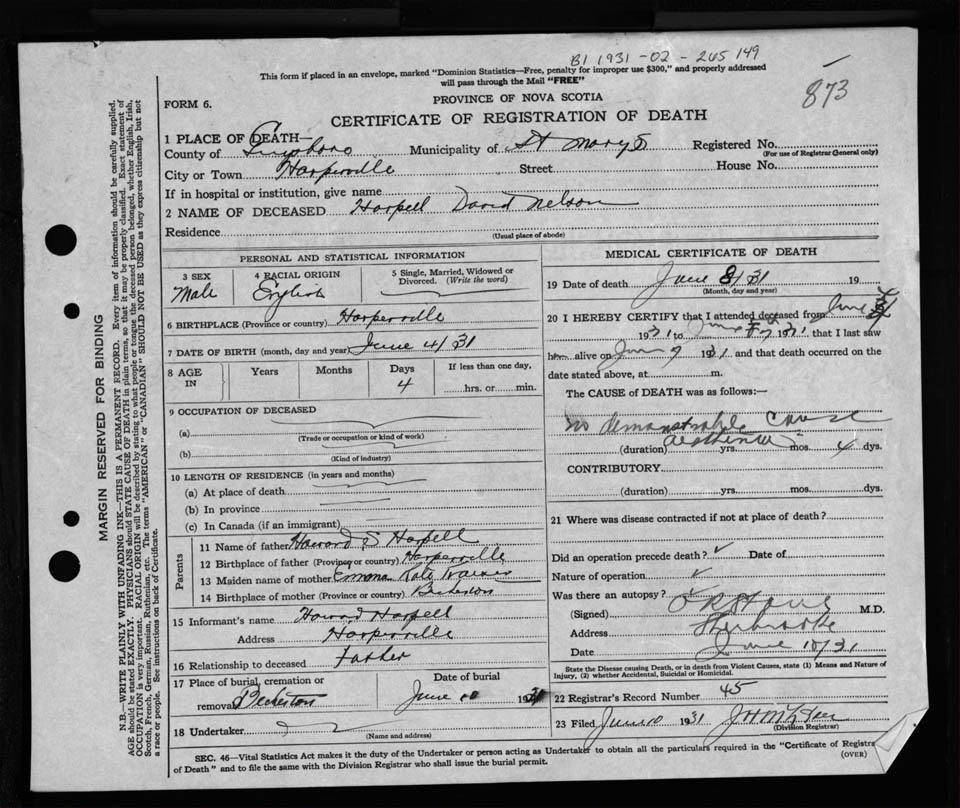 B1 1931-02-245149
873
This form if placed in an envelope, marked "Dominion Statistics—Free, penalty for improper use $300," and properly addressed
will pass through the Mail "FREE"
FORM 6.
PROVINCE OF NOVA SCOTIA
CERTIFICATE OF REGISTRATION OF DEATH
1 PLACE OF DEATH—
County of Municipality of St Mary's Registered No.
(For use of Registrar General only)
City or Town Harperville Street House No.
If in hospital or institution, give name
2 NAME OF DECEASED Harpell David Nelson
Residence
(Usual place of abode)
PERSONAL AND STATISTICAL INFORMATION
3 SEX Male
4 RACIAL ORIGIN English
5 Single, Married, Widowed or
Divorced. (Write the word)
6 BIRTHPLACE (Province or country) Harperville
7 DATE OF BIRTH (month, day and year) June 4/31
8 AGE IN
Years Months Days If less than one day,
4 hrs. or min.
9 OCCUPATION OF DECEASED
(a)
(Trade or occupation or kind of work)
(b)
(Kind of industry)
10 LENGTH OF RESIDENCE (in years and months)
(a) At place of death
(b) In province
(c) In Canada (if an immigrant)
Parents
11 Name of father Howard D Harpell
12 Birthplace of father (Province or country) Harperville
13 Maiden name of mother Emma Kate
14 Birthplace of mother (Province or country)
15 Informant's name Howard Harpell
Address Harperville
16 Relationship to deceased Father
17 Place of burial, cremation or Date of burial
removal June 10 1931
18 Undertaker
(Name and address)
MEDICAL CERTIFICATE OF DEATH
19 Date of death June 8/31 19
(Month, day and year)
20 I HEREBY CERTIFY that I attended deceased from June
1931 to June 7 1931 that I last saw
h alive on June 7 1931 and that death occurred on the
date stated above, at m.
The CAUSE OF DEATH was as follows:—
No demonstrable cause
Aesthenia
(duration) yrs. mos. 4 dys.
CONTRIBUTORY
(duration) yrs. mos. dys.
21 Where was disease contracted if not at place of death?
Did an operation precede death? ✓ Date of
Nature of operation ✓
Was there an autopsy?
(Signed) M.D.
Address Sherbrooke
Date June 10/31
State the Disease causing Death, or in death from Violent Causes, state (1) Means and Nature of
Injury, (2) whether Accidental, Suicidal or Homicidal.
22 Registrar's Record Number 45
23 Filed June 10 1931
(Division Registrar)
SEC. 46—Vital Statistics Act makes it the duty of the Undertaker or person acting as Undertaker to obtain all the particulars required in the "Certificate of Registra
of Death" and to file the same with the Division Registrar who shall issue the burial permit.
(OVER)
MARGIN RESERVED FOR BINDING
N.B.—WRITE PLAINLY WITH UNFADING INK—THIS IS A PERMANENT RECORD. Every item of information should be carefully supplied.
AGE should be stated EXACTLY. PHYSICIANS should STATE CAUSE OF DEATH in plain terms, so that it may be properly classified. Exact statement of
OCCUPATION is very important. RACIAL ORIGIN will be described by stating to what people or tongue the deceased person belonged, whether English, Irish,
Scotch, French, German, Russian, Ruthenian, etc. The terms "AMERICAN" or "CANADIAN" SHOULD NOT BE USED as they express citizenship but not
a race or people. See instructions on back of Certificate.